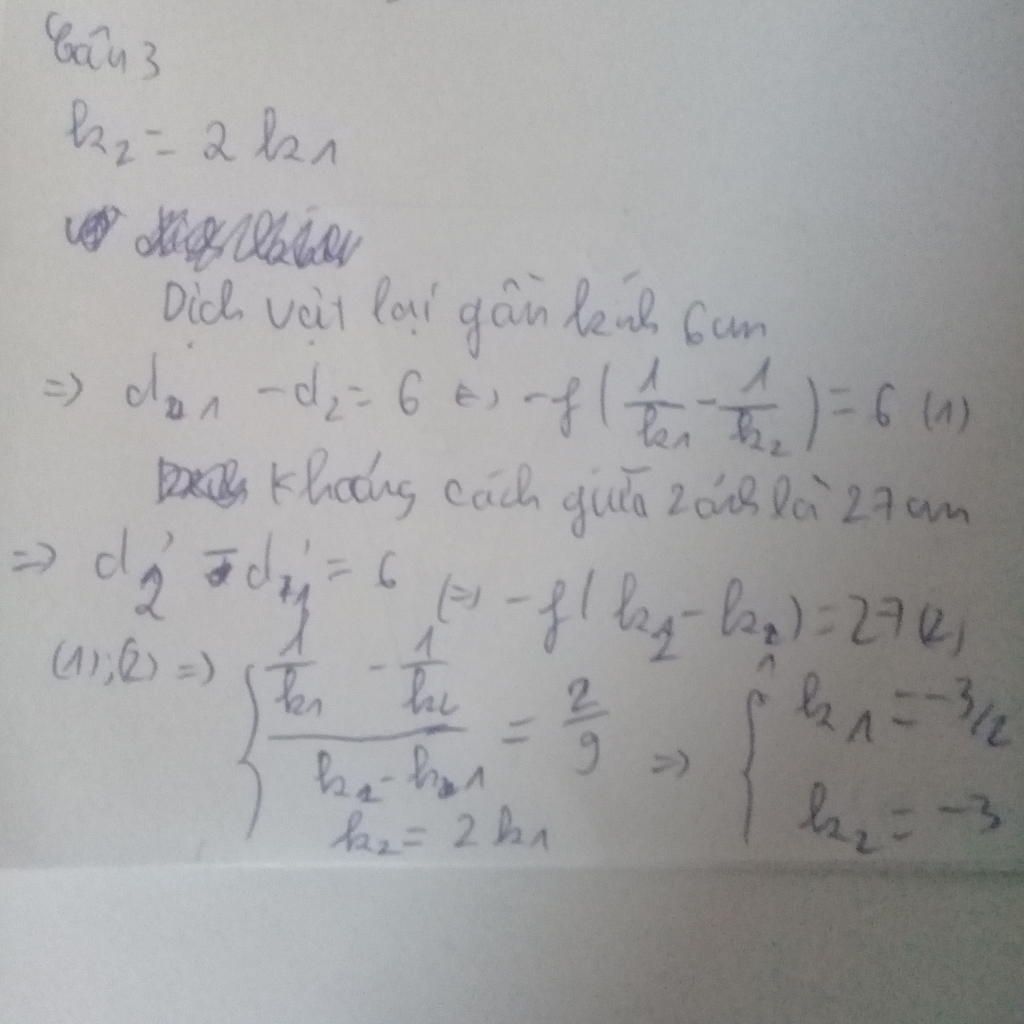 Câu 3
k₂ = 2 k₁
Dịch vật lại gần kính 6cm
=> d₁ - d₂ = 6 <=> -f(1/k₁ - 1/k₂) = 6 (1)
Khoảng cách giữa 2 ảnh là 27cm
=> d₂' - d₁' = 6 <=> -f(k₂ - k₁) = 27 (2)
(1);(2) => { (1/k₁ - 1/k₂)/(k₂ - k₁) = 2/9 => { k₁ = -3/2
k₂ = 2 k₁ k₂ = -3